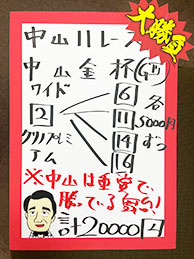 大勝負
中山11レース
中山金杯(GⅢ)
ワイド
2
6
11
14
16
各
5000円
ずつ
クリノプレミアム
※中山は重賞で
勝っている舞台!
計20000円